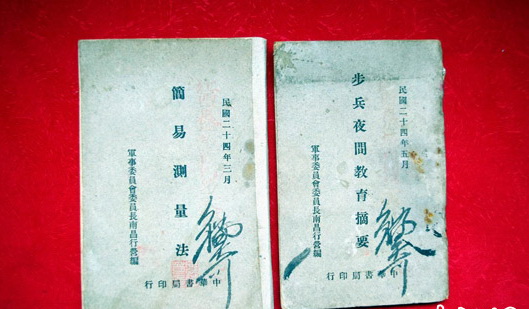 民國二十四年三月
簡易測量法
軍事委員會委員長南昌行營編
中華書局印行
民國二十四年五月
步兵夜間教育摘要
軍事委員會委員長南昌行營編
中華書局印行